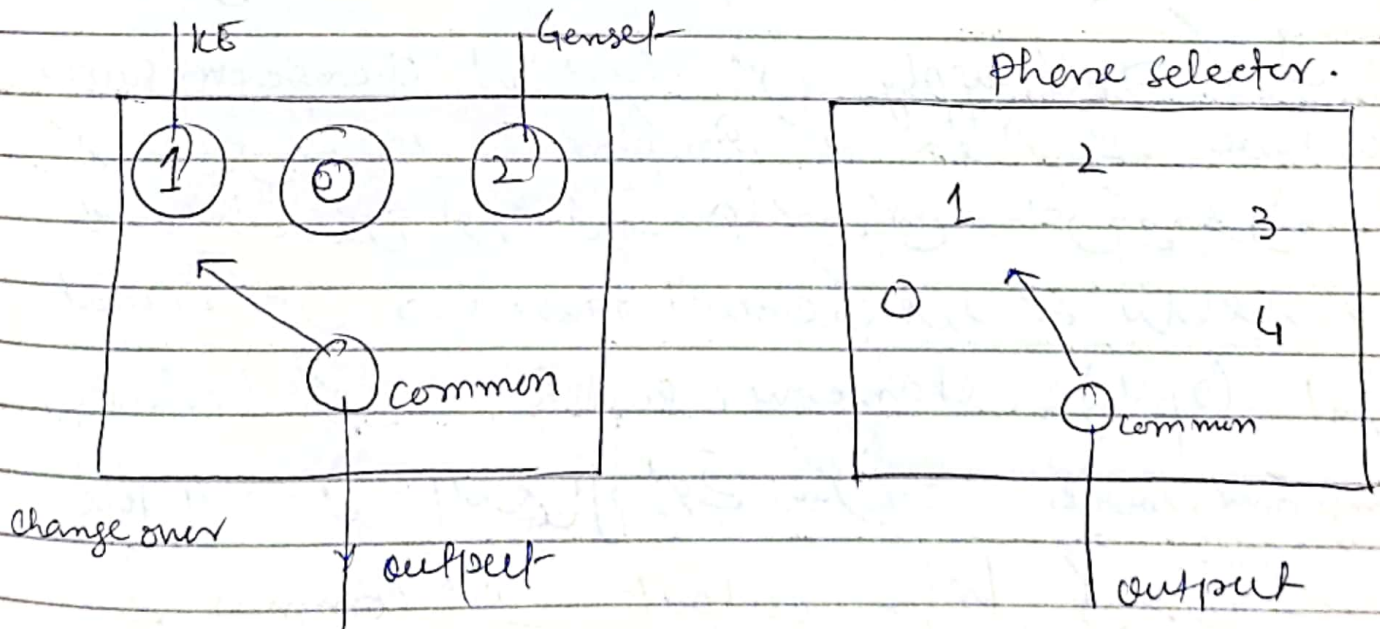 KE
Genset
1
0
2
common
change over
output
Phase selector.
2
1
3
0
4
common
output